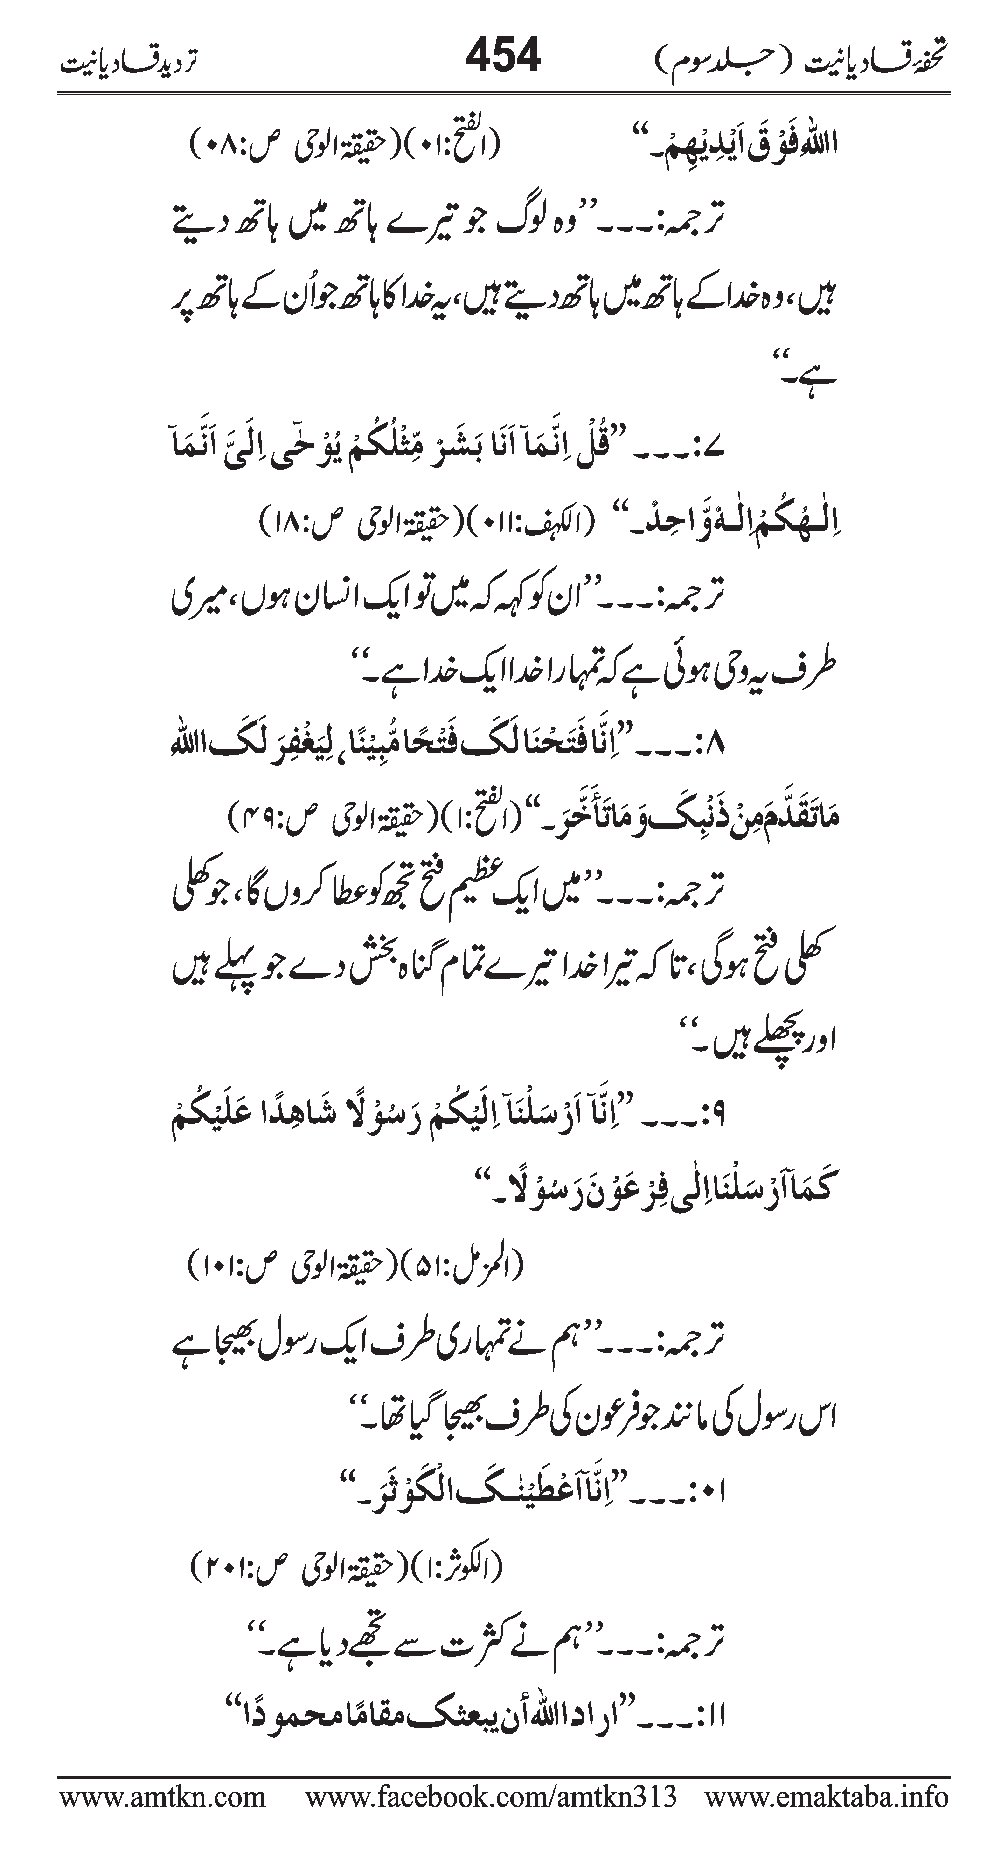 تحفۂ قادیانیت (جلد سوم) 454 تردید قادیانیت
اﷲِ فَوْقَ اَیْدِیْهِمْ۔‘‘ (الفتح:۰۱)(حقیقۃ الوحی ص:۰۸)
ترجمہ:۔۔۔’’وہ لوگ جو تیرے ہاتھ میں ہاتھ دیتے
ہیں، وہ خدا کے ہاتھ میں ہاتھ دیتے ہیں، یہ خدا کا ہاتھ جو اُن کے ہاتھ پر
ہے۔‘‘
۷:۔۔۔ ’’قُلْ اِنَّمَآ اَنَا بَشَرٌ مِّثْلُکُمْ یُوْحٰٓی اِلَیَّ اَنَّمَآ
اِلٰـهُکُمْ اِلٰـهٌ وَّاحِدٌ۔‘‘ (الکہف:۰۱۱)(حقیقۃ الوحی ص:۱۸)
ترجمہ:۔۔۔’’ان کو کہہ کہ میں تو ایک انسان ہوں، میری
طرف یہ وحی ہوئی ہے کہ تمہارا خدا ایک خدا ہے۔‘‘
۸:۔۔۔’’اِنَّا فَتَحْنَا لَکَ فَتْحًا مُّبِیْنًا، لِیَغْفِرَ لَکَ اﷲ
مَا تَقَدَّمَ مِنْ ذَنْبِکَ وَمَا تَأَخَّرَ۔‘‘(الفتح:۱)(حقیقۃ الوحی ص:۴۹)
ترجمہ:۔۔۔’’میں ایک عظیم فتح تجھ کو عطا کروں گا، جو کھلی
کھلی فتح ہوگی، تاکہ تیرا خدا تیرے تمام گناہ بخش دے جو پہلے ہیں
اور پچھلے ہیں۔‘‘
۹:۔۔۔ ’’اِنَّآ اَرْسَلْنَآ اِلَیْکُمْ رَسُوْلًا شَاهِدًا عَلَیْکُمْ
کَمَآ اَرْسَلْنَا اِلٰی فِرْعَوْنَ رَسُوْلًا۔‘‘
(المزمل:۵۱)(حقیقۃ الوحی ص:۱۰۱)
ترجمہ:۔۔۔’’ہم نے تمہاری طرف ایک رسول بھیجا ہے
اس رسول کی مانند جو فرعون کی طرف بھیجا گیا تھا۔‘‘
۰۱:۔۔۔’’اِنَّآ اَعْطَیْنٰـکَ الْکَوْثَرَ۔‘‘
(الکوثر:۱)(حقیقۃ الوحی ص:۲۰۱)
ترجمہ:۔۔۔’’ہم نے کثرت سے تجھے دیا ہے۔‘‘
۱۱:۔۔۔’’اراد اﷲ أن یبعثک مقامًا محمودًا‘‘
www.amtkn.com www.facebook.com/amtkn313 www.emaktaba.info